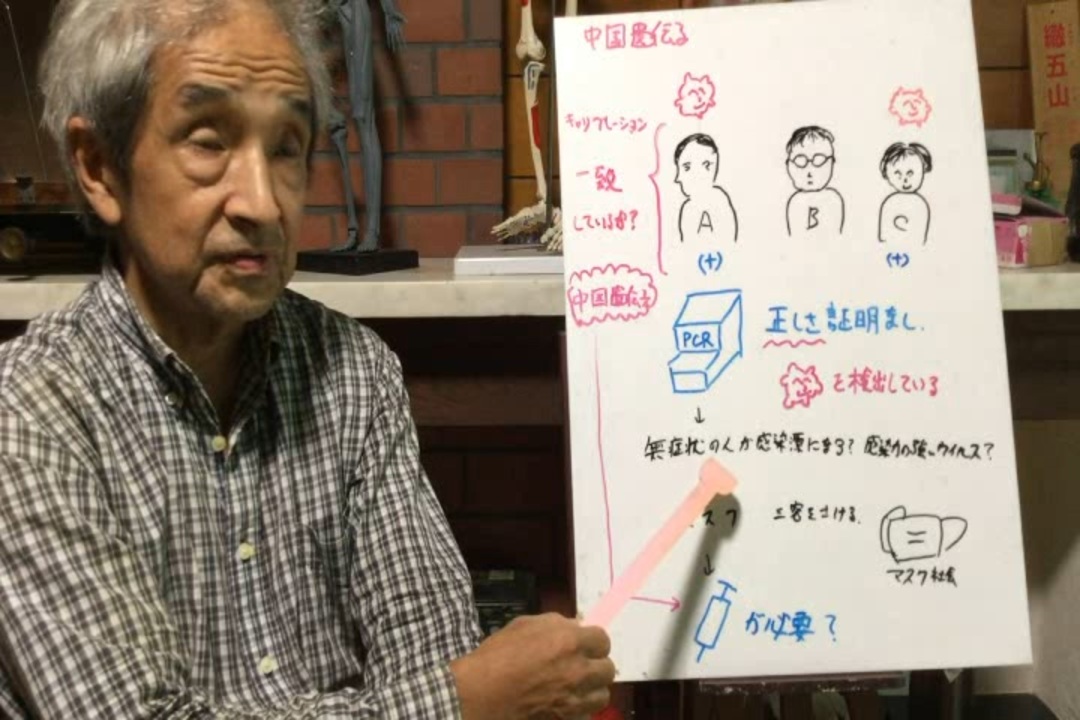 中国遺伝子
キャリブレーション
一致
しているか?
A
B
C
(+)
(+)
中国遺伝子
PCR
正しさ証明なし.
を検出している
↓
無症状の人が感染源になる? 感染力の強いウイルス?
スク
三密をさける.
マスク社会
↓
が必要?
五山